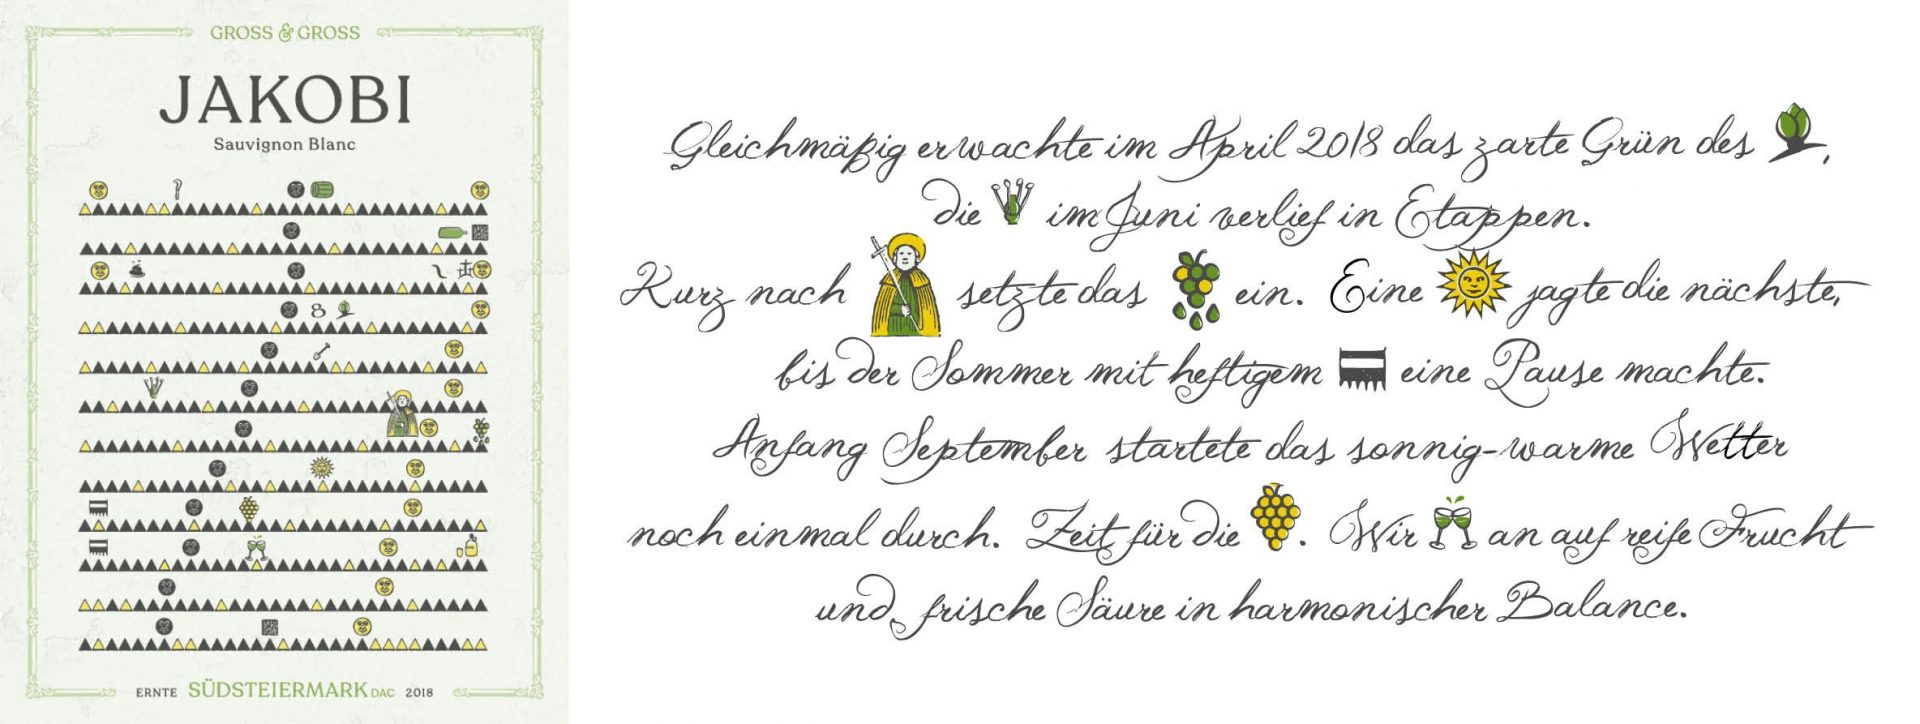 GROSS & GROSS
JAKOBI
Sauvignon Blanc
8
ERNTE SÜDSTEIERMARK DAC 2018
Gleichmäßig erwachte im April 2018 das zarte Grün des ,
die im Juni verlief in Etappen.
Kurz nach setzte das ein. Eine jagte die nächste,
bis der Sommer mit heftigem eine Pause machte.
Anfang September startete das sonnig-warme Wetter
noch einmal durch. Zeit für die . Wir an auf reife Frucht
und frische Säure in harmonischer Balance.